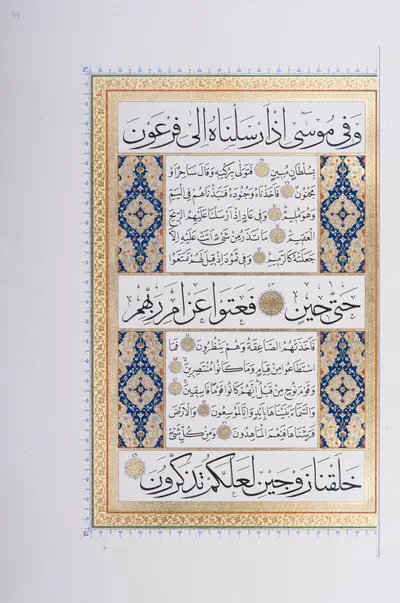 وَفِي مُوسَى إِذْ أَرْسَلْنَاهُ إِلَى فِرْعَوْنَ
بِسُلْطَانٍ مُبِينٍ فَتَوَلَّى بِرُكْنِهِ وَقَالَ سَاحِرٌ أَوْ
مَجْنُونٌ فَأَخَذْنَاهُ وَجُنُودَهُ فَنَبَذْنَاهُمْ فِي الْيَمِّ
وَهُوَ مُلِيمٌ وَفِي عَادٍ إِذْ أَرْسَلْنَا عَلَيْهِمُ الرِّيحَ
الْعَقِيمَ مَا تَذَرُ مِنْ شَيْءٍ أَتَتْ عَلَيْهِ إِلَّا
جَعَلَتْهُ كَالرَّمِيمِ وَفِي ثَمُودَ إِذْ قِيلَ لَهُمْ تَمَتَّعُوا
حَتَّى حِينٍ فَعَتَوْا عَنْ أَمْرِ رَبِّهِمْ
فَأَخَذَتْهُمُ الصَّاعِقَةُ وَهُمْ يَنْظُرُونَ فَمَا
اسْتَطَاعُوا مِنْ قِيَامٍ وَمَا كَانُوا مُنْتَصِرِينَ
وَقَوْمَ نُوحٍ مِنْ قَبْلُ إِنَّهُمْ كَانُوا قَوْمًا فَاسِقِينَ
وَالسَّمَاءَ بَنَيْنَاهَا بِأَيْدٍ وَإِنَّا لَمُوسِعُونَ وَالْأَرْضَ
فَرَشْنَاهَا فَنِعْمَ الْمَاهِدُونَ وَمِنْ كُلِّ شَيْءٍ
خَلَقْنَا زَوْجَيْنِ لَعَلَّكُمْ تَذَكَّرُونَ